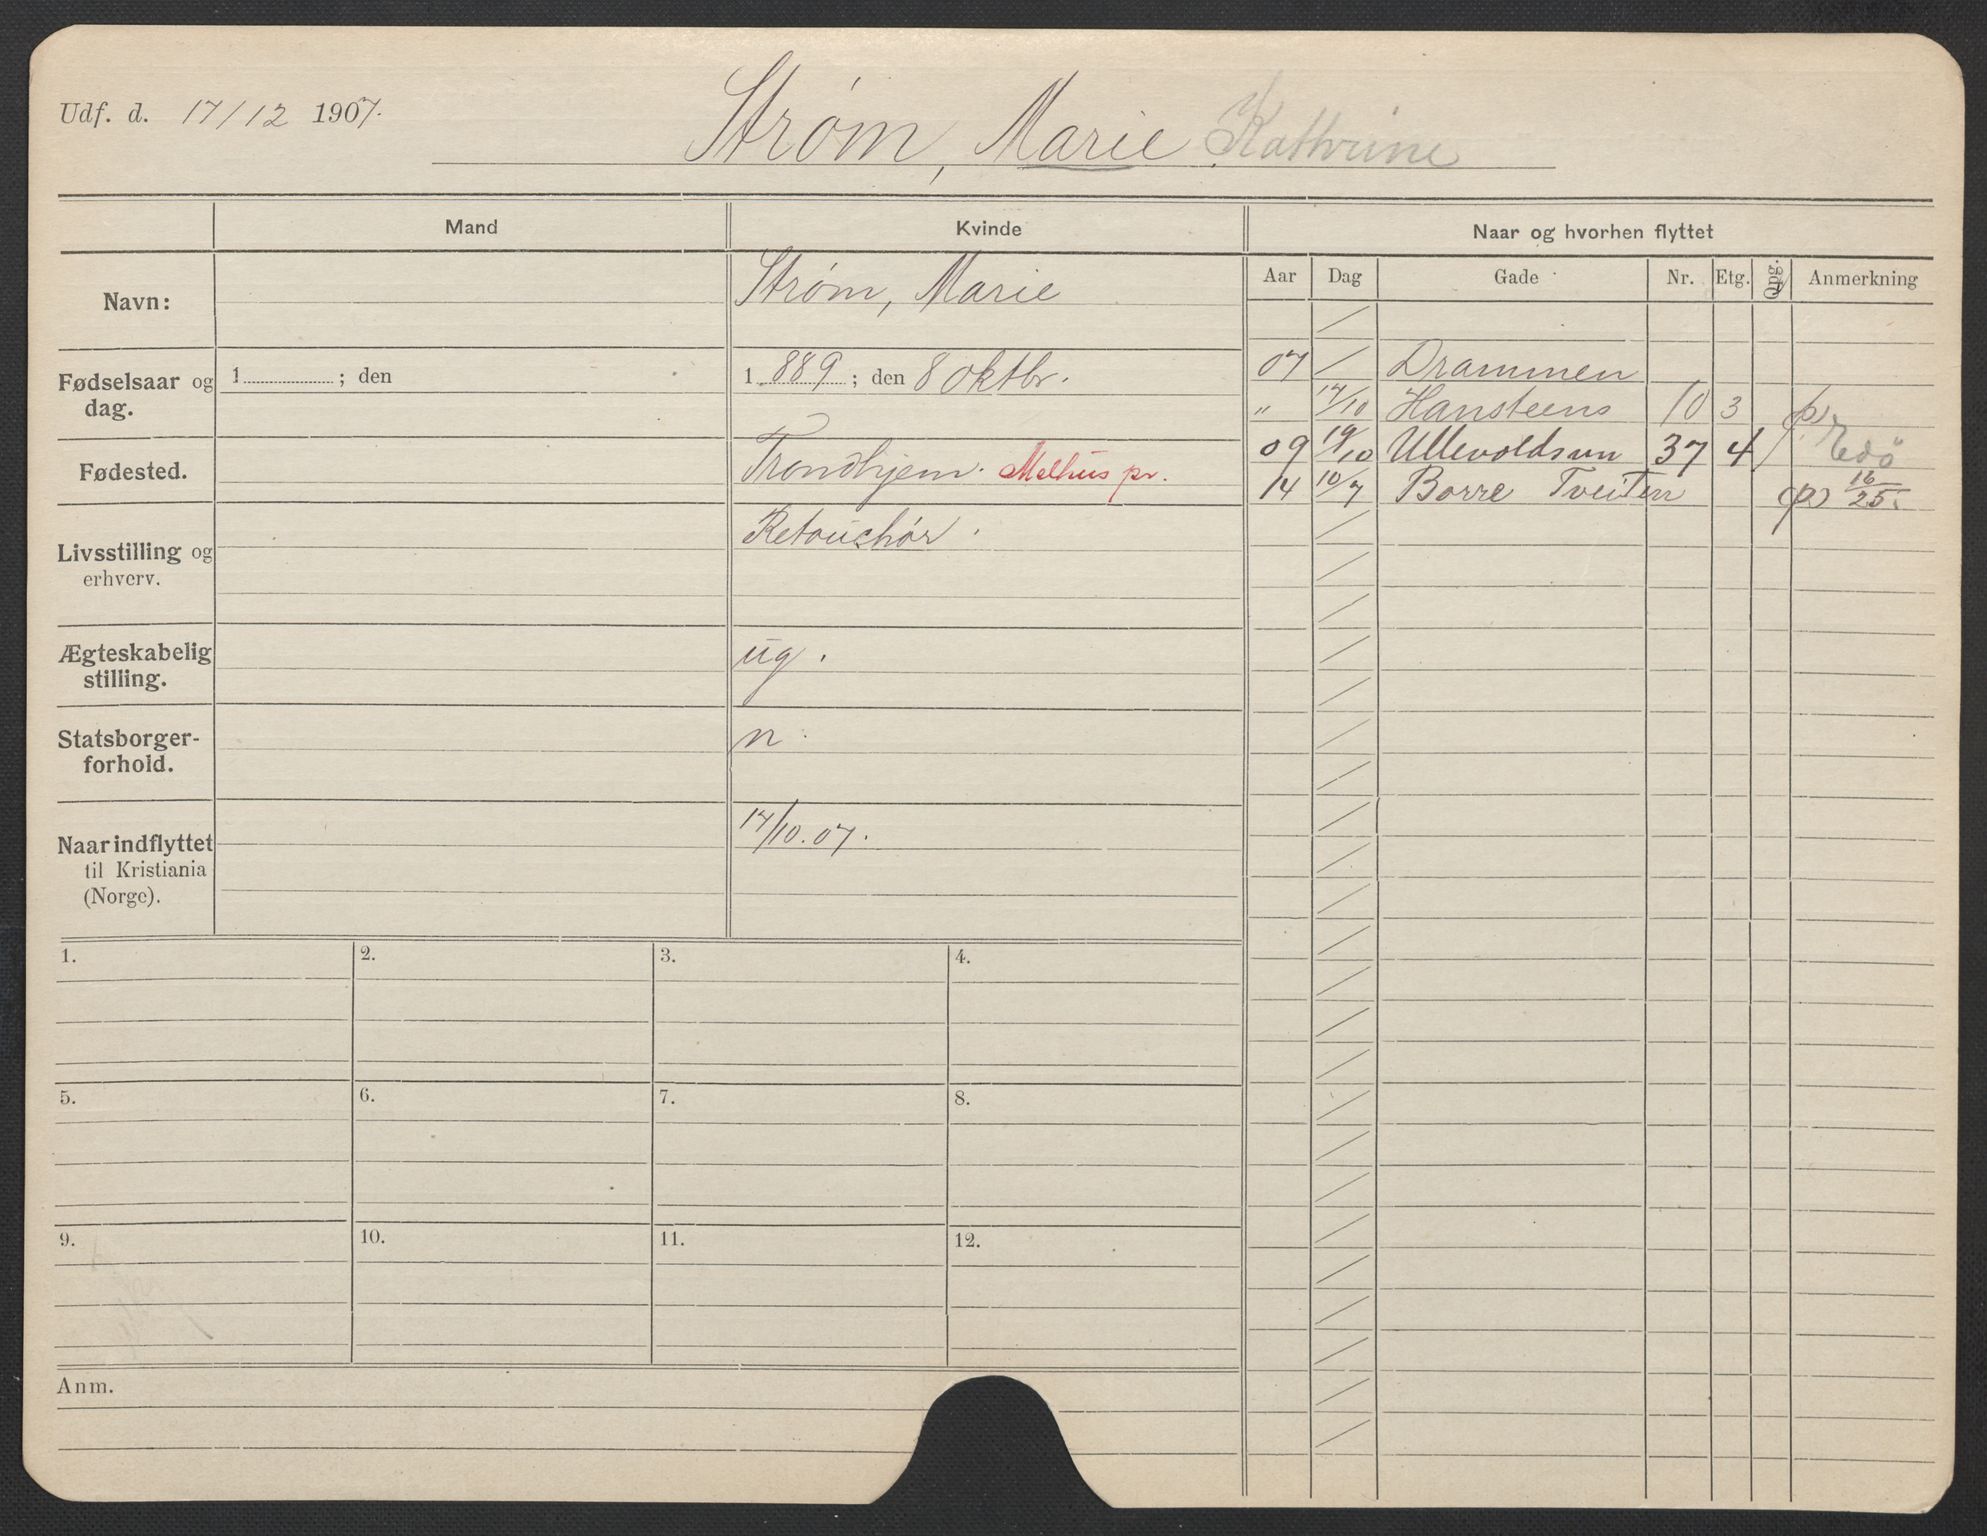 Udf. d. 17/12 1907.
Strøm, Marie Kathrine
Mand
Kvinde
Naar og hvorhen flyttet
Aar Dag Gade Nr. Etg. Opg. Anmerkning
Navn: Strøm, Marie
Fødselsaar og dag. 1 ; den 1 889 ; den 8 oktbr.
Fødested. Trondhjem. Melhus pr.
Livsstilling og erhverv. Retouchør.
Ægteskabelig stilling. ug.
Statsborgerforhold. n.
Naar indflyttet til Kristiania (Norge). 17/10.07.
07 / Drammen
" 17/10 Hansteens 10 3 p)
09 19/10 Ullevoldsvn 37 4
14 10/7 Borre Tveiten (p) 16/25
1. 2. 3. 4.
5. 6. 7. 8.
9. 10. 11. 12.
Anm.